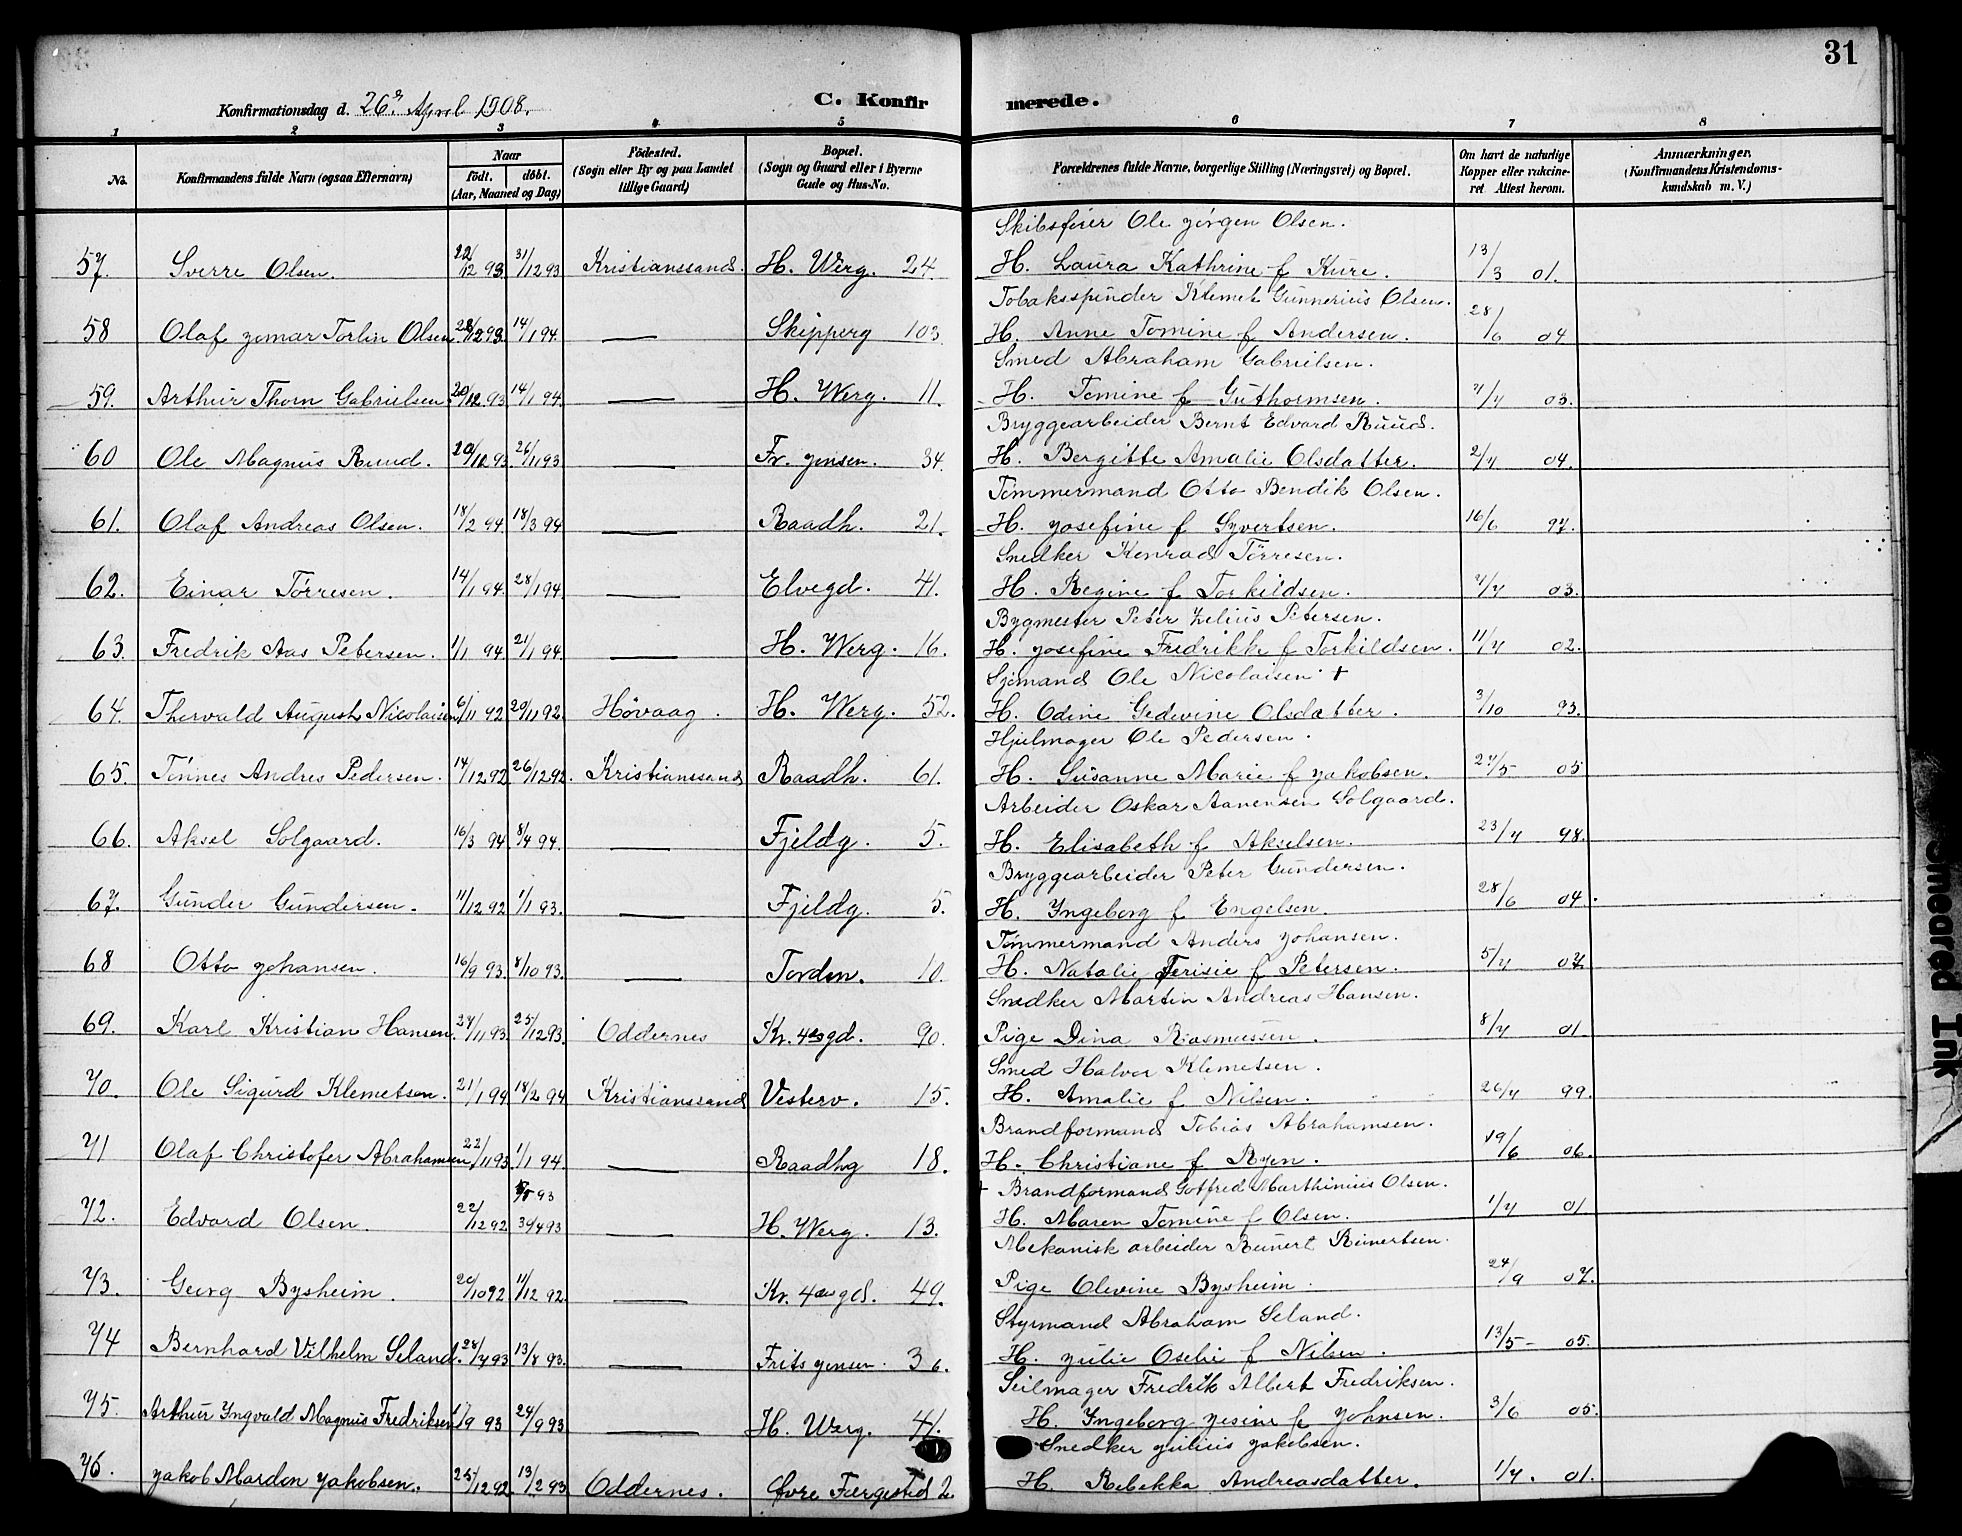 31
Konfirmationsdag d. 26de April 1908.
C. Konfirmerede.
1 2 3 4 5 6 7 8
No.
Konfirmandens fulde Navn (ogsaa Efternavn)
Naar
födt. döbt.
(Aar, Maaned og Dag)
Födested.
(Sogn eller By og paa Landet
tillige Gaard)
Bopæl.
(Sogn og Gaard eller i Byerne
Gade og Hus-No.
Forældrenes fulde Navne, borgerlige Stilling (Næringsvei) og Bopæl.
Om havt de naturlige
Kopper eller vakcine-
ret Attest herom.
Anmærkninger.
(Konfirmandens Kristendoms-
kundskab m. V.)
Skibsfører Ole Jørgen Olsen.
57. Sverre Olsen. 22/12 93 31/12 93 Kristianssand. H. Werg. 24. H. Laura Kathrine f Kure. 13/3 01.
Tobaksspinder Klemet Gunnerius Olsen.
58 Olaf Jomar Torlin Olsen. 28/12 93. 14/1 94. — Skipperg 103 H. Anne Tomine f Andersen. 28/6 04
Smed Abraham Gabrielsen.
59. Arthur Thom Gabrielsen. 20/12 93 14/1 94. — H. Werg. 11. H. Tomine f Guthormsen. 7/7 03.
Bryggearbeider Bernt Edvard Ruud.
60 Ole Magnus Ruud. 20/12 93. 26/11 93 — Fr. Jensen. 34. H. Bergitte Amalie Olsdatter. 2/7 04.
Tømmermand Otto Bendik Olsen.
61. Olaf Andreas Olsen. 18/2 94 18/3 94 — Raadh. 21. H. Josefine f Syvertsen. 16/6 97.
Snedker Konrad Tørresen.
62. Einar Tørresen. 14/1 94. 28/1 94. — Elvegd. 41. H. Regine f Torkildsen. 7/7 03.
Bygmester Peter Zelius Petersen.
63. Fredrik Aas Petersen. 1/1 94 21/1 94. — H. Werg. 16. H. Josefine Fredrikke f Torkildsen. 11/7 02.
Sjømand Ole Nicolaisen †
64. Thorvald August Nicolaisen 6/11 92 20/11 92. Høvaag. H. Werg. 52. H. Odine Gedevine Olsdatter. 3/10 93.
Hjulmager Ole Pedersen.
65. Tønnes Andres Pedersen. 14/12 92 26/12 92. Kristianssand Raadh. 61. H. Susanne Marie f Jakobsen. 27/5 05
Arbeider Oskar Aanensen Solgaard.
66. Aksel Solgaard. 16/3 94 8/4 94. — Fjeldg. 5. H. Elisabeth f Akselsen. 23/7 98.
Bryggearbeider Peter Gundersen.
67. Gunder Gundersen. 11/12 92 1/1 93. — Fjeldg. 5. H. Ingeborg f Engelsen. 28/6 04.
Tømmermand Anders Johansen.
68 Otto Johansen. 16/9 93. 8/10 93. — Torden. 10. H. Natalie Terisie f Petersen. 5/7 07.
Snedker Martin Andreas Hansen.
69. Karl Kristian Hansen. 27/11 93. 25/12 93. Oddernes Kr. 4des gd. 90. Pige Dina Rasmussen. 8/7 01
Smed Halvor Klemetsen.
70. Ole Sigurd Klemetsen. 21/1 94 18/2 94 Kristianssand Vesterv. 15. H. Amalie f Nilsen. 26/7 99.
Brandformand Tobias Abrahamsen.
71 Olaf Christofer Abrahamsen 22/11 93. 1/1 94. — Raadhg 18. H. Christiane f Ryen. 19/6 06.
† Brandformand Gotfred Marthinius Olsen.
72. Edvard Olsen. 22/12 92 30/4 93 — H. Werg. 13. H. Maren Tomine f Olsen. 1/7 01
Mekanisk arbeider Reinert Reinertsen.
73. Georg Bysheim. 20/10 92 11/12 92. — Kr. 4des gd. 49. Pige Olevine Bysheim. 24/9 07.
Styrmand Abraham Seland.
74 Bernhard Vilhelm Seland. 28/7 93 13/8 93. — Frits Jensen. 36. H. Julie Oselie f Nilsen. 13/5 - 05.
Seilmager Fredrik Albert Fredriksen.
75. Arthur Ingvald Magnus Fredriksen 1/9 93 24/9 93 — H. Werg. 41. H. Ingeborg Jesine f Johnsen. 3/6 05.
Snedker Julius Jakobsen.
76. Jakob Mardon Jakobsen. 25/12 92. 13/2 93 Oddernes. Øvre Færgested 2. H. Rebekka Andreasdatter. 1/7. 01.
Smeared Ink